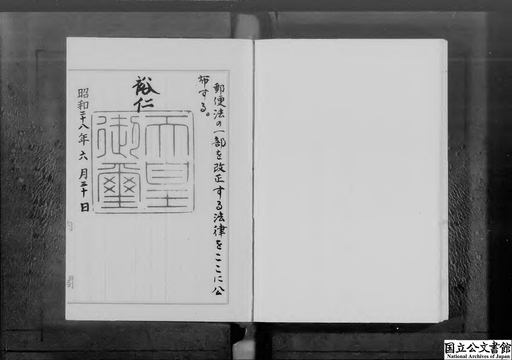 郵便法の一部を改正する法律をここに公
布する。
裕仁
天皇
御璽
昭和二十八年六月三十日
国立公文書館
National Archives of Japan